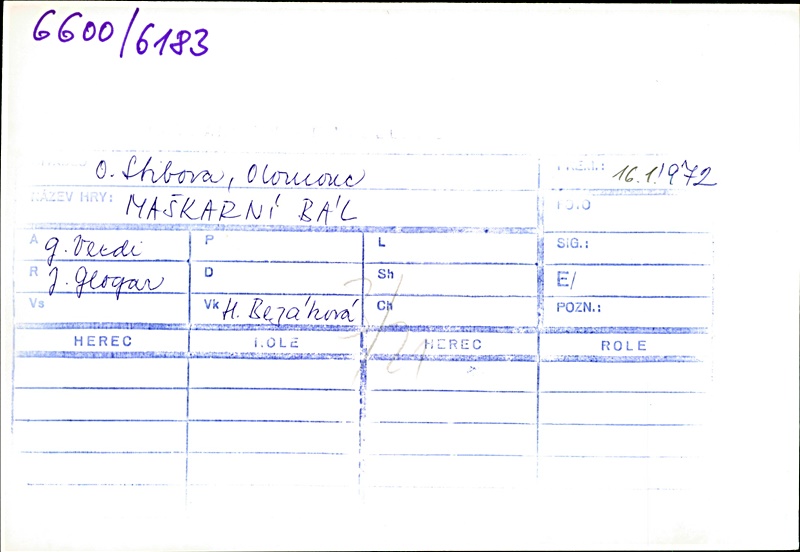 6600/6183
O. Stibora, Olomouc PREM.: 16.1.1972
NÁZEV HRY: MAŠKARNÍ BÁL FOTO
A G. Verdi P L SIG.:
R J. Glogar D Sh E/
Vs Vk H. Bezáková Ch POZN.:
HEREC ROLE HEREC ROLE